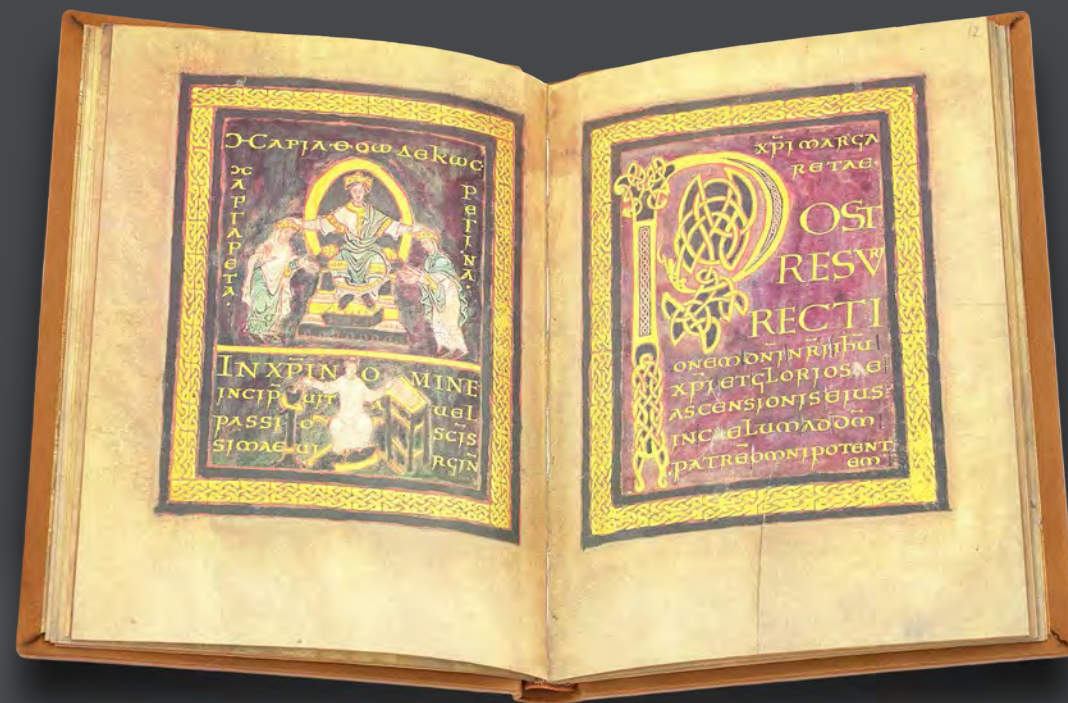 ϽϹΑΡΙΑΘΟωΔΕΚωϹ
ϽϹΑΡΓΑΡΕΤΑ·
ΡΕΓΙΝΑ·
IN XP̄I NO MINE
INCIP̄ UIT A UEL
PASSI O SCĪS
SIMAE UI RGIN̄
12
XP̄I MARGA
RETAE·
POST
RESVR
RECTI
ONEM DN̄I NR̄I IHŪ
XP̄I ET GLORIOSAE
ASCENSIONIS EIUS:
IN CAELUM AD DM̄
PATRĒ OMNIPOTENT
EM·